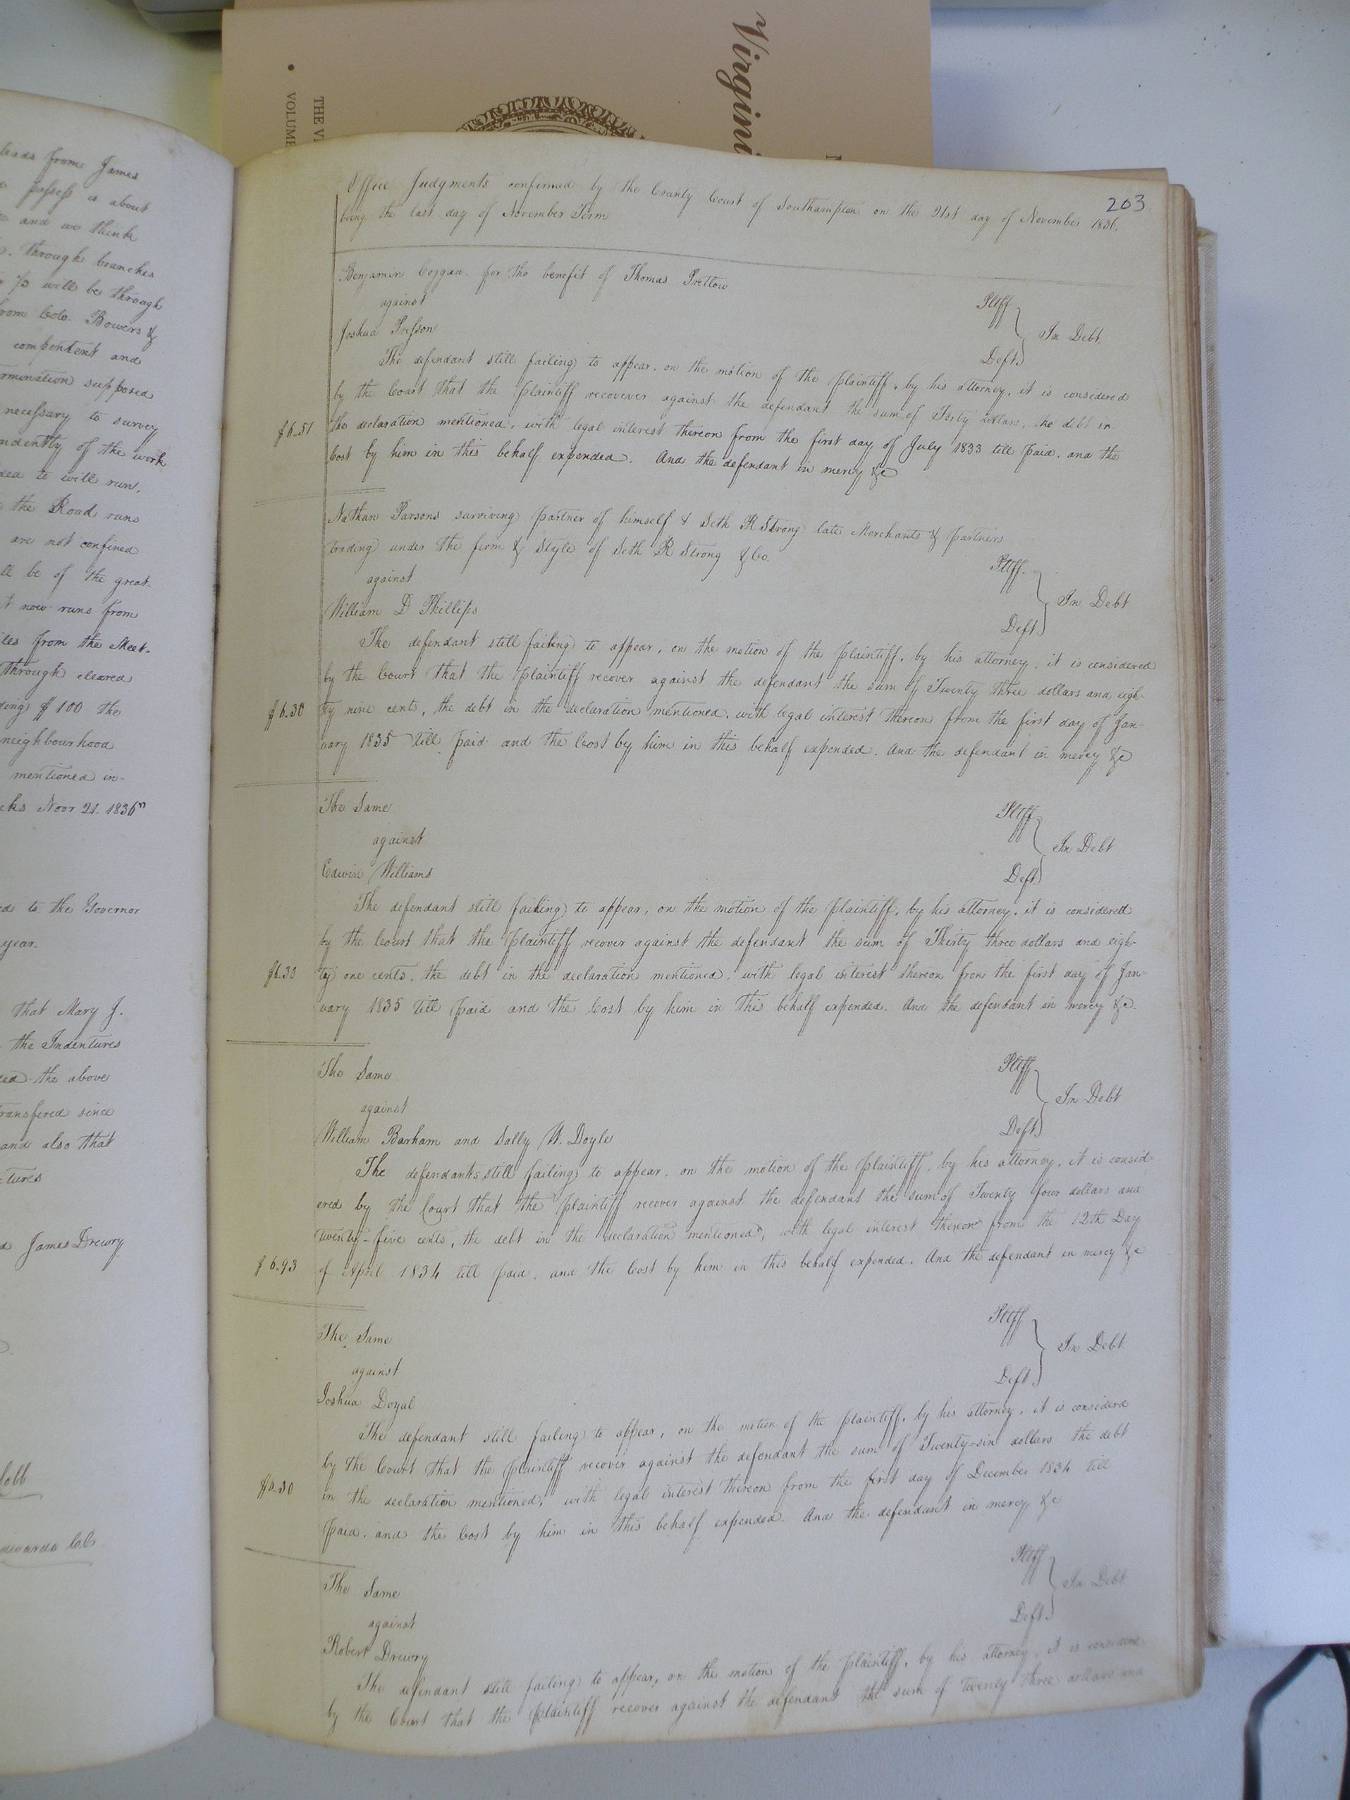 Virgini
THE V
VOLUME
leads from James
possess is about
and we think
through branches
will be through
from Colo. Bowers &
compentent and
rmination supposed
necessary to survey
ndently of the work
to will runs,
the Road runs
are not confined
ll be of the great-
now runs from
les from the Meet-
Through cleared
ding $100 the
neighbourhood
mentioned in-
cks Novr 21. 1836"
ed to the Governor
year.
that Mary J.
the Indentures
the above
transfered since
and also that
ctures
James Drewry
203
Office Judgments confirmed by the County Court of Southampton on the 21st day of November 1836.
being the last day of November Term
Benjamin Coggan for the benefit of Thomas Pretlow
against Pltff
Joshua Joyner In Debt
Deft.
The defendant still failing to appear, on the motion of the plaintiff, by his attorney, it is considered
by the Court that the plaintiff recovever against the defendant the sum of Forty dollars, the debt in
$6.51 the declaration mentioned, with legal interest thereon from the first day of July 1833 till paid, and the
Cost by him in this behalf expended. And the defendant in mercy &c
Nathan Parsons surviving partner of himself & Seth R Strong late Merchants & partners
trading under the firm & style of Seth R Strong & Co. Pltff.
against In Debt
William D Phillips Deft.
The defendant still failing to appear, on the motion of the plaintiff, by his attorney, it is considered
by the Court that the plaintiff recover against the defendant the sum of Twenty three dollars and eigh-
$6.30 ty nine cents, the debt in the declaration mentioned, with legal interest thereon from the first day of Jan-
uary 1835 till paid and the Cost by him in this behalf expended. And the defendant in mercy &c
The Same Pltff
against In Debt
Edwin Williams Deft
The defendant still failing to appear, on the motion of the plaintiff, by his attorney, it is considered
by the Court that the plaintiff recover against the defendant the sum of Thirty three dollars and eigh-
$6.33 ty one cents, the debt in the declaration mentioned, with legal interest thereon from the first day of Jan-
uary 1835 till paid and the Cost by him in this behalf expended. And the defendant in mercy &c.
The Same Pltff
against In Debt
William Barham and Sally W. Doyle Deft
The defendants still failing to appear, on the motion of the plaintiff, by his attorney, it is consid-
ered by the Court that the plaintiff recover against the defendant the sum of Twenty four dollars and
twenty-five cents, the debt in the declaration mentioned, with legal interest thereon from the 12th Day
$6.93 of April 1834 till paid, and the Cost by him in this behalf expended. And the defendant in mercy &c
The Same Pltff
against In Debt
Joshua Doyal Deft.
The defendant still failing to appear, on the motion of the plaintiff, by his attorney, it is considered
by the Court that the plaintiff recover against the defendant the sum of Twenty-six dollars the debt
$6.30 in the declaration mentioned, with legal interest thereon from the first day of December 1834 till
paid, and the Cost by him in this behalf expended. And the defendant in mercy &c
The Same Pltff
against In Debt
Robert Drewry Deft.
The defendant still failing to appear, on the motion of the plaintiff, by his attorney, it is considered
by the Court that the plaintiff recover against the defendant the sum of twenty three dollars and